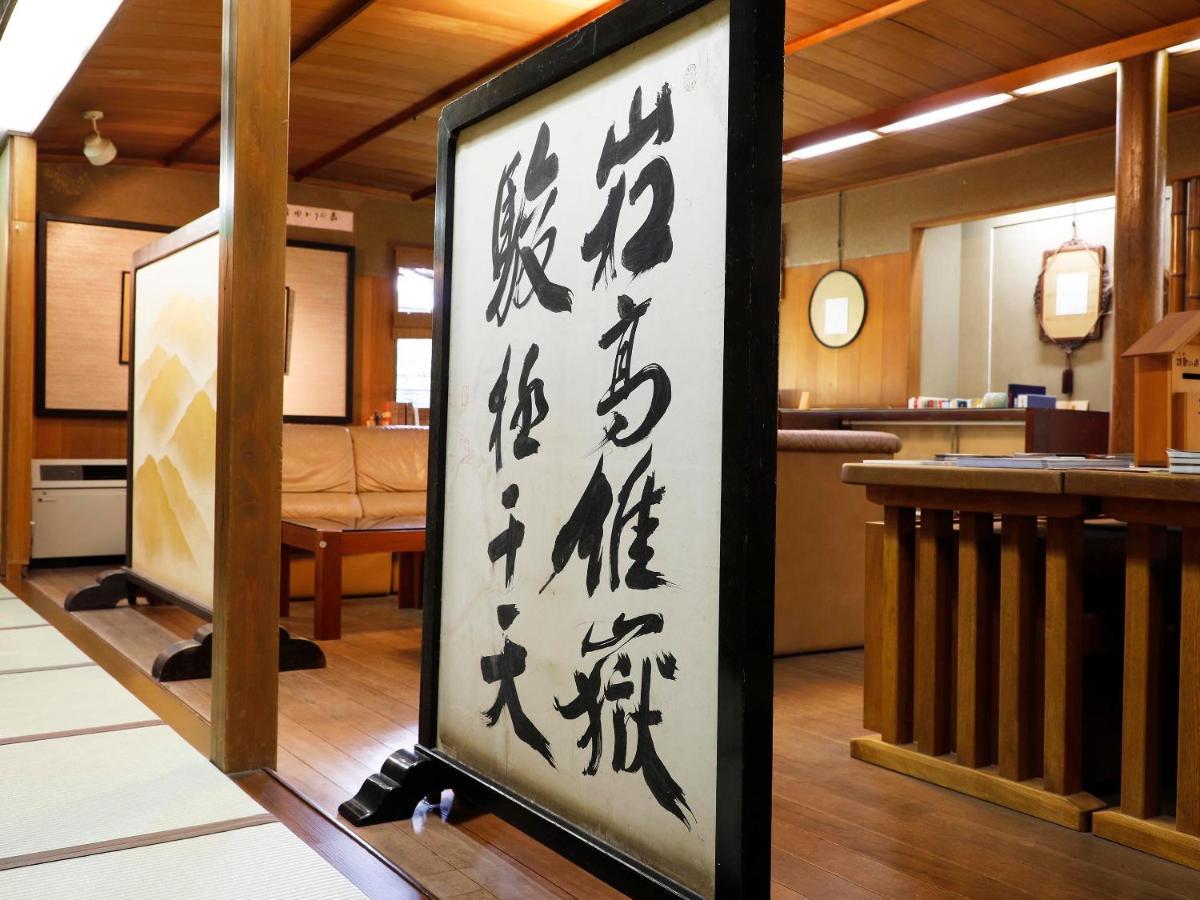 崧高維嶽
駿極于天